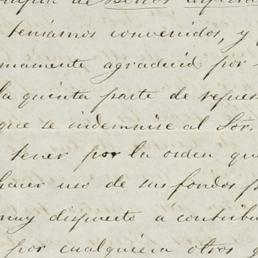 teníamos convenidos, y
agradecido por
la quinta parte de
que se indemnise al Sor.
tener por la orden que
hacer uso de sus fondos
muy dispuesto á
por cualquiera otros